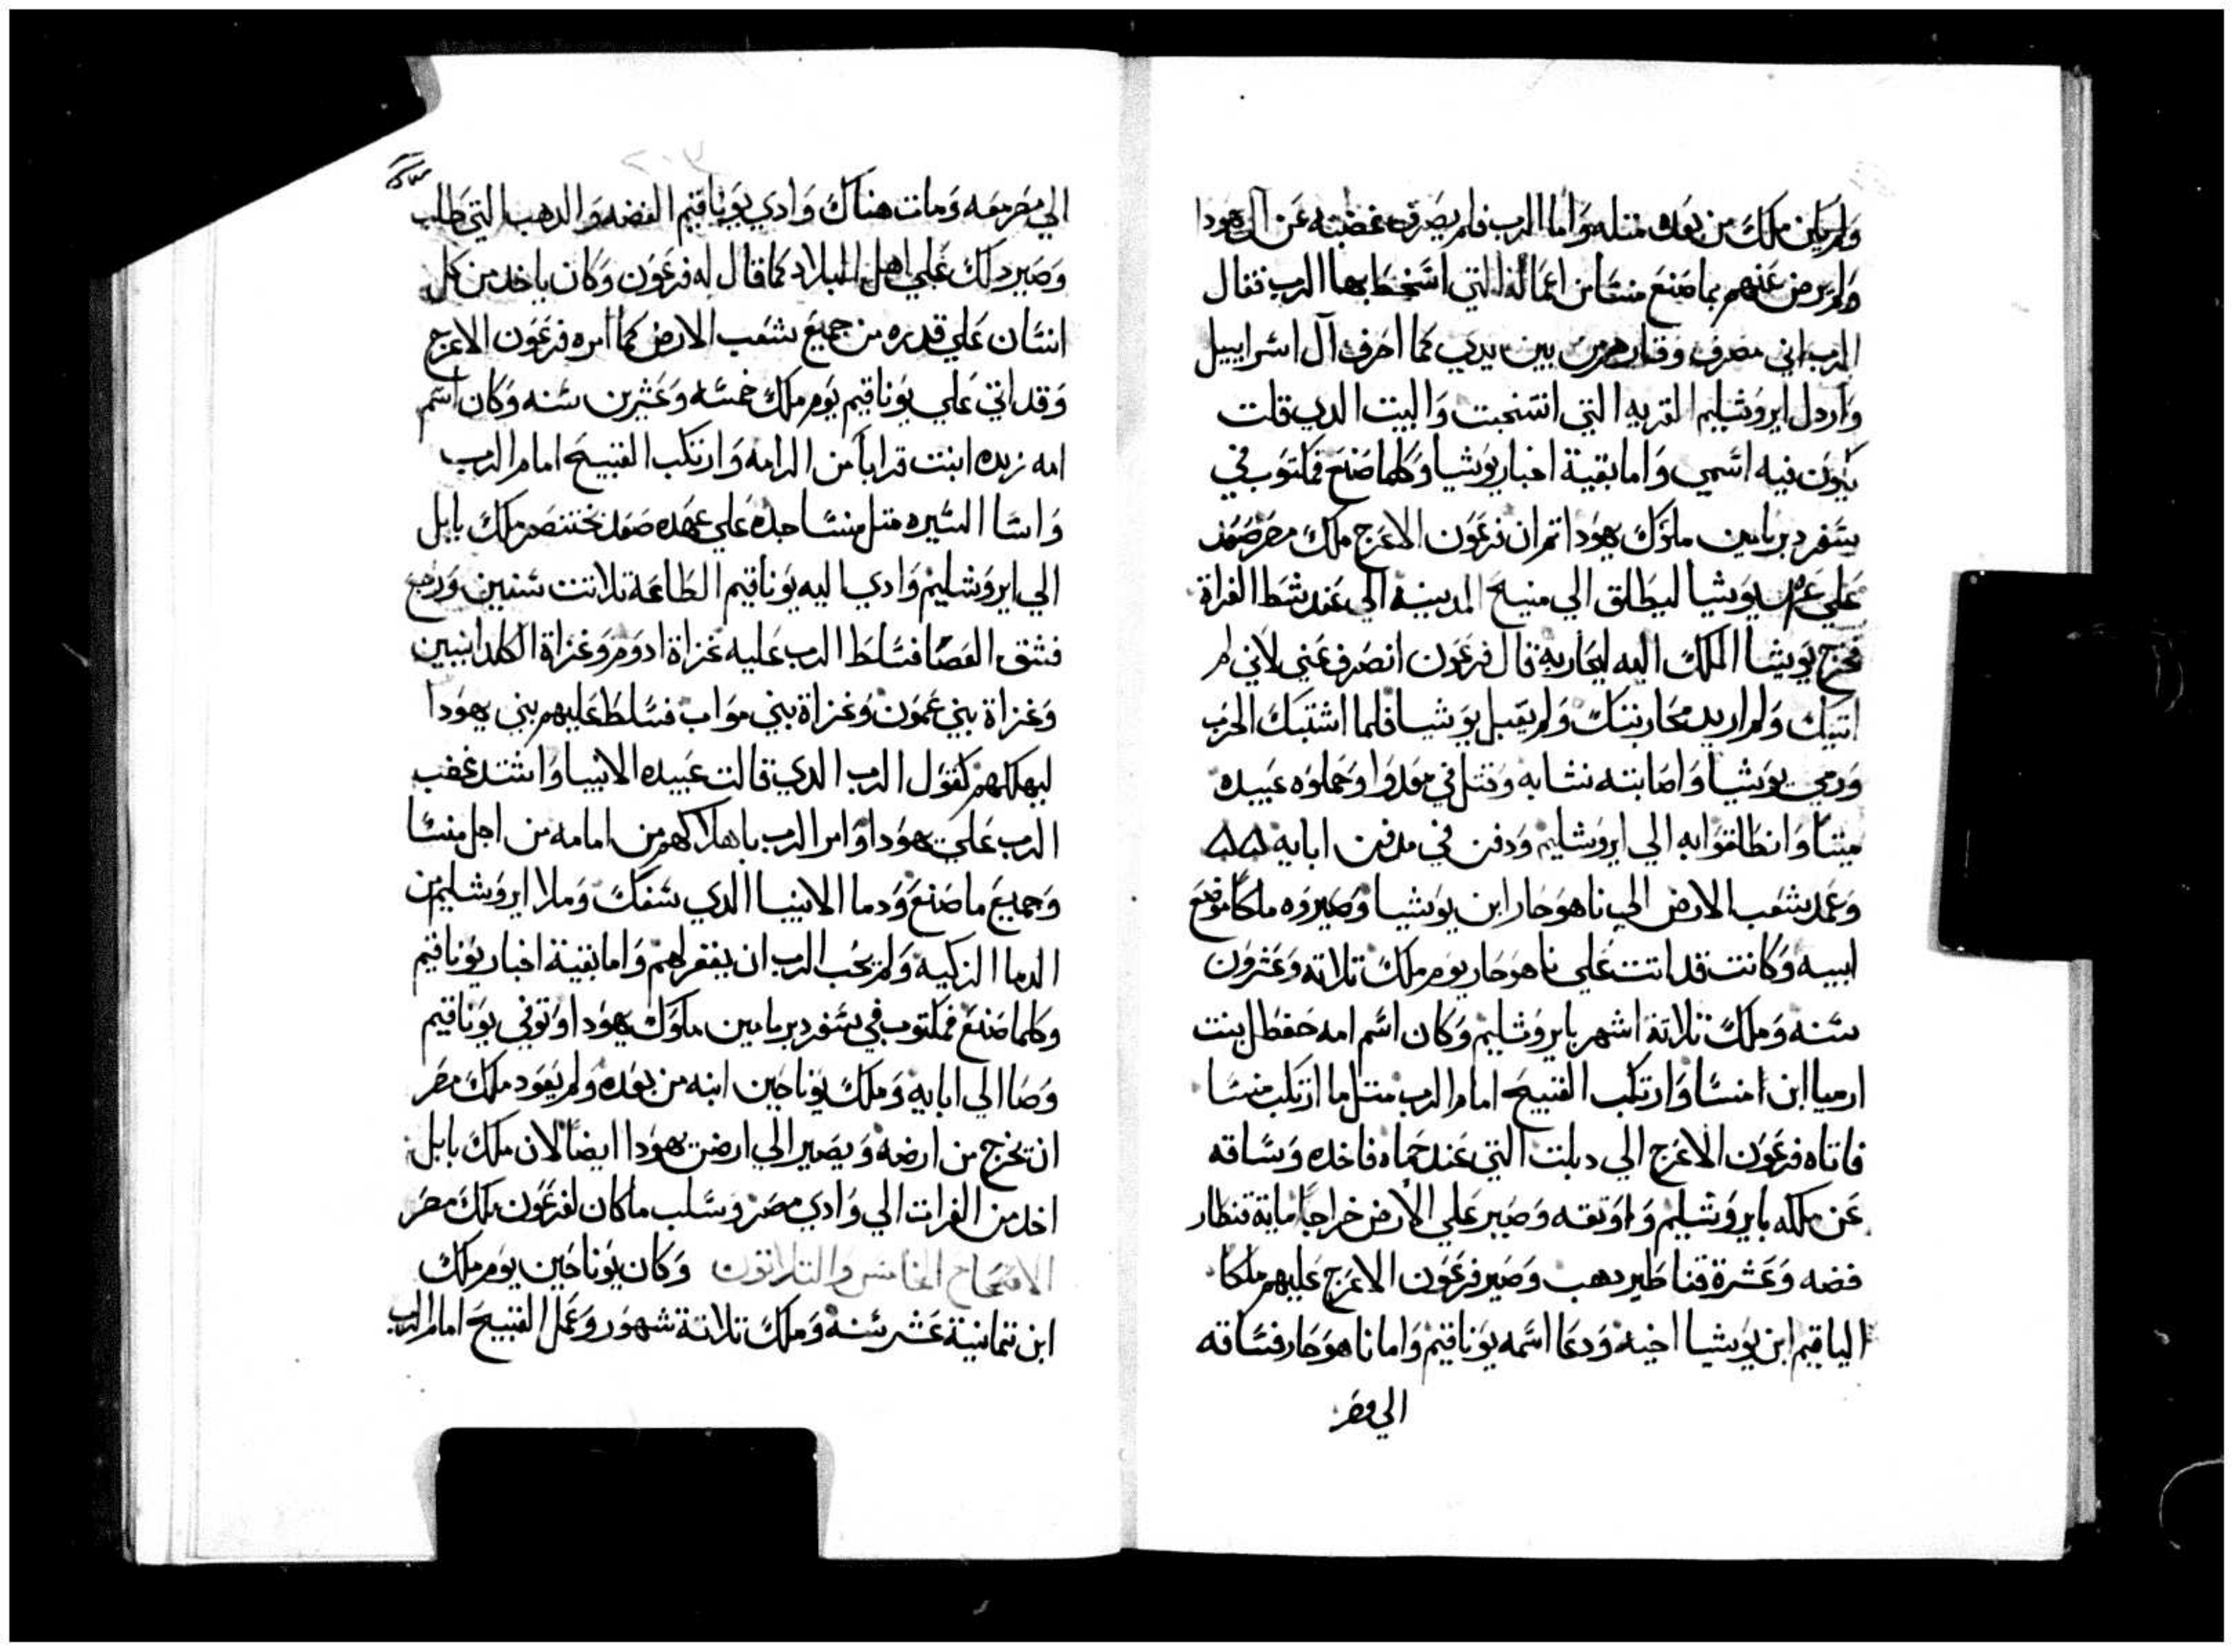 ولم يكن ملك من بعده مثله واما الرب فلم يصرف غضبته عن آل يهودا
ولم يرض عنهم بما صنع منسا من اعماله التي اسخط بها الرب فقال
الرب اني مصرف من بين يدي كما اخرف آل اسراييل
وارذل ايروشليم القريه التي انتخبت والبيت الدي قلت
يكون فيه اسمي واما بقية اخبار يوشيا وكلما صنع فمكتوب في
سفر دبريامين ملوك يهودا تم ان فرعون الاعرج ملك مصر صعد
علي يوشيا ليطلق الي منبح المدينة الي عند شط الفراة
فخرج يوشيا الملك اليه ليحاربه قال فرعون انصرف عني لاني لم
اتيك ولم اريد محاربتك ولم يقبل يوشيا فلما اشتبك الحرب
ورمي يوشيا واصابته نشابه وقتل في مغدوا وحملوه عبيده
ميتا وانطلقوا به الي ايروشليم ودفن في مدفن ابايه
وعمد شعب الارض الي ناهوحاز ابن يوشيا وصيروه ملكا موضع
ابيه وكانت قد اتت علي ناهوحاز يوم ملك تلاته وعشرون
سنه وملك تلاتة اشهر بايروشليم وكان اسم امه حفطل بنت
ارميا ابن امنسا وارتكب القبيح امام الرب متل ما ارتكب منسا
فاتاه فرعون الاعرج الي دبلت التي عند حماه فاخده وساقه
عن ملكه بايروشليم واوتقه وصير علي الارض خراجا ماية قنطار
فضه وعشرة قناطير دهب وصير فرعون الاعرج عليهم ملكا
الياقيم ابن يوشيا اخيه ودعا اسمه يوناقيم واما ناهوحاز فساقه
الي مصر
الي مصر معه ومات هناك وادي يوناقيم الفضه والدهب التي طلب
وصير دلك علي اهل البلاد كما قال له فرعون وكان ياخد من كل
انسان علي قدره من جميع شعب الارض كما امره فرعون الاعرج
وقد اتي علي يوناقيم يوم ملك خمسه وعشرين سنه وكان اسم
امه زبده ابنت قدايا من الرامه وارتكب القبيح امام الرب
واسا السيره متل منسا جده علي عهده صعد بختنصر ملك بابل
الي ايروشليم وادي اليه يوناقيم الطاعة تلاتت سنين ورجع
فشق العصا فسلط الرب عليه غزاة ادوم وغزاة الكلدانيين
وغزاة بني عمون وغزاة بني مواب فسلط عليهم بني يهودا
ليهلكهم كقول الرب الدي قالت عبيده الانبيا واشتد غضب
الرب علي يهودا وامر الرب باهلاكهم من امامه من اجل منسا
وجميع ما صنع ودما الانبيا الدي سفك وملا ايروشليم من
الدما الزكيه ولم يحب الرب ان يغفر لهم واما بقية اخبار يوناقيم
وكلما صنع فمكتوب في سفر دبريامين ملوك يهودا وتوفي يوناقيم
وصا الي ابايه وملك يوناخين ابنه من بعده ولم يعود ملك مصر
ان يخرج من ارضه ويصير الي ارض يهودا ايضا لان ملك بابل
اخد من الفرات الي وادي مصر وسلب ما كان لفرعون ملك مصر
الاصحاح الخامس والتلاتون وكان يوناخين يوم ملك
ابن تمانية عشر سنة وملك تلاتة شهور وعمل القبيح امام الرب